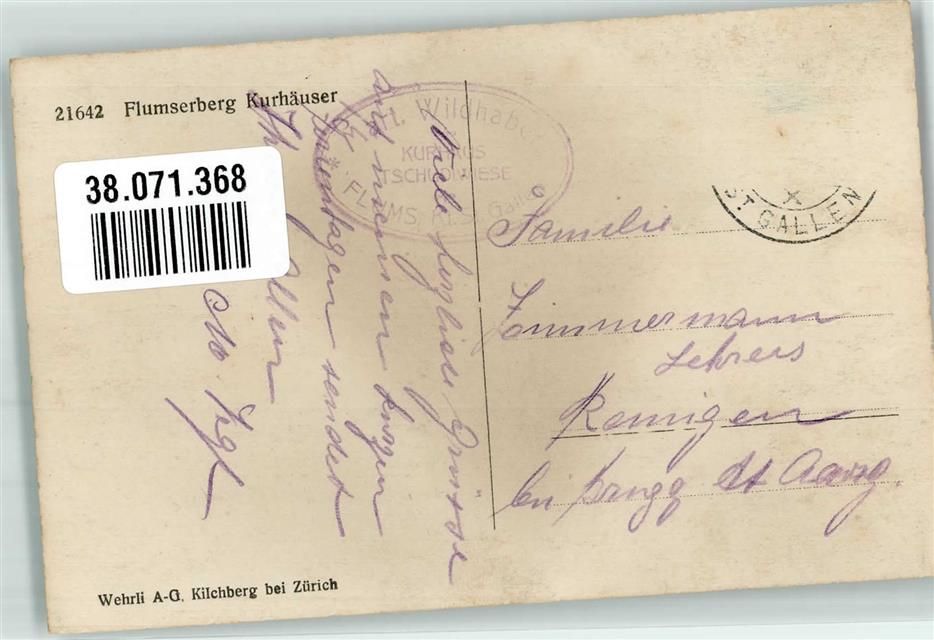 21642 Flumserberg Kurhäuser
38.071.368
Wildhaber
KURHAUS
TSCHUDIWIESE
FLUMS, Kt. St. Gallen
Viele herzliche Grüsse
aus meinen kurzen
Ferientagen sendet
Ihnen Allen
ST. GALLEN
Familie
Zimmermann
Lehrers
Remigen
bei Brugg Kt Aarg.
Wehrli A-G. Kilchberg bei Zürich